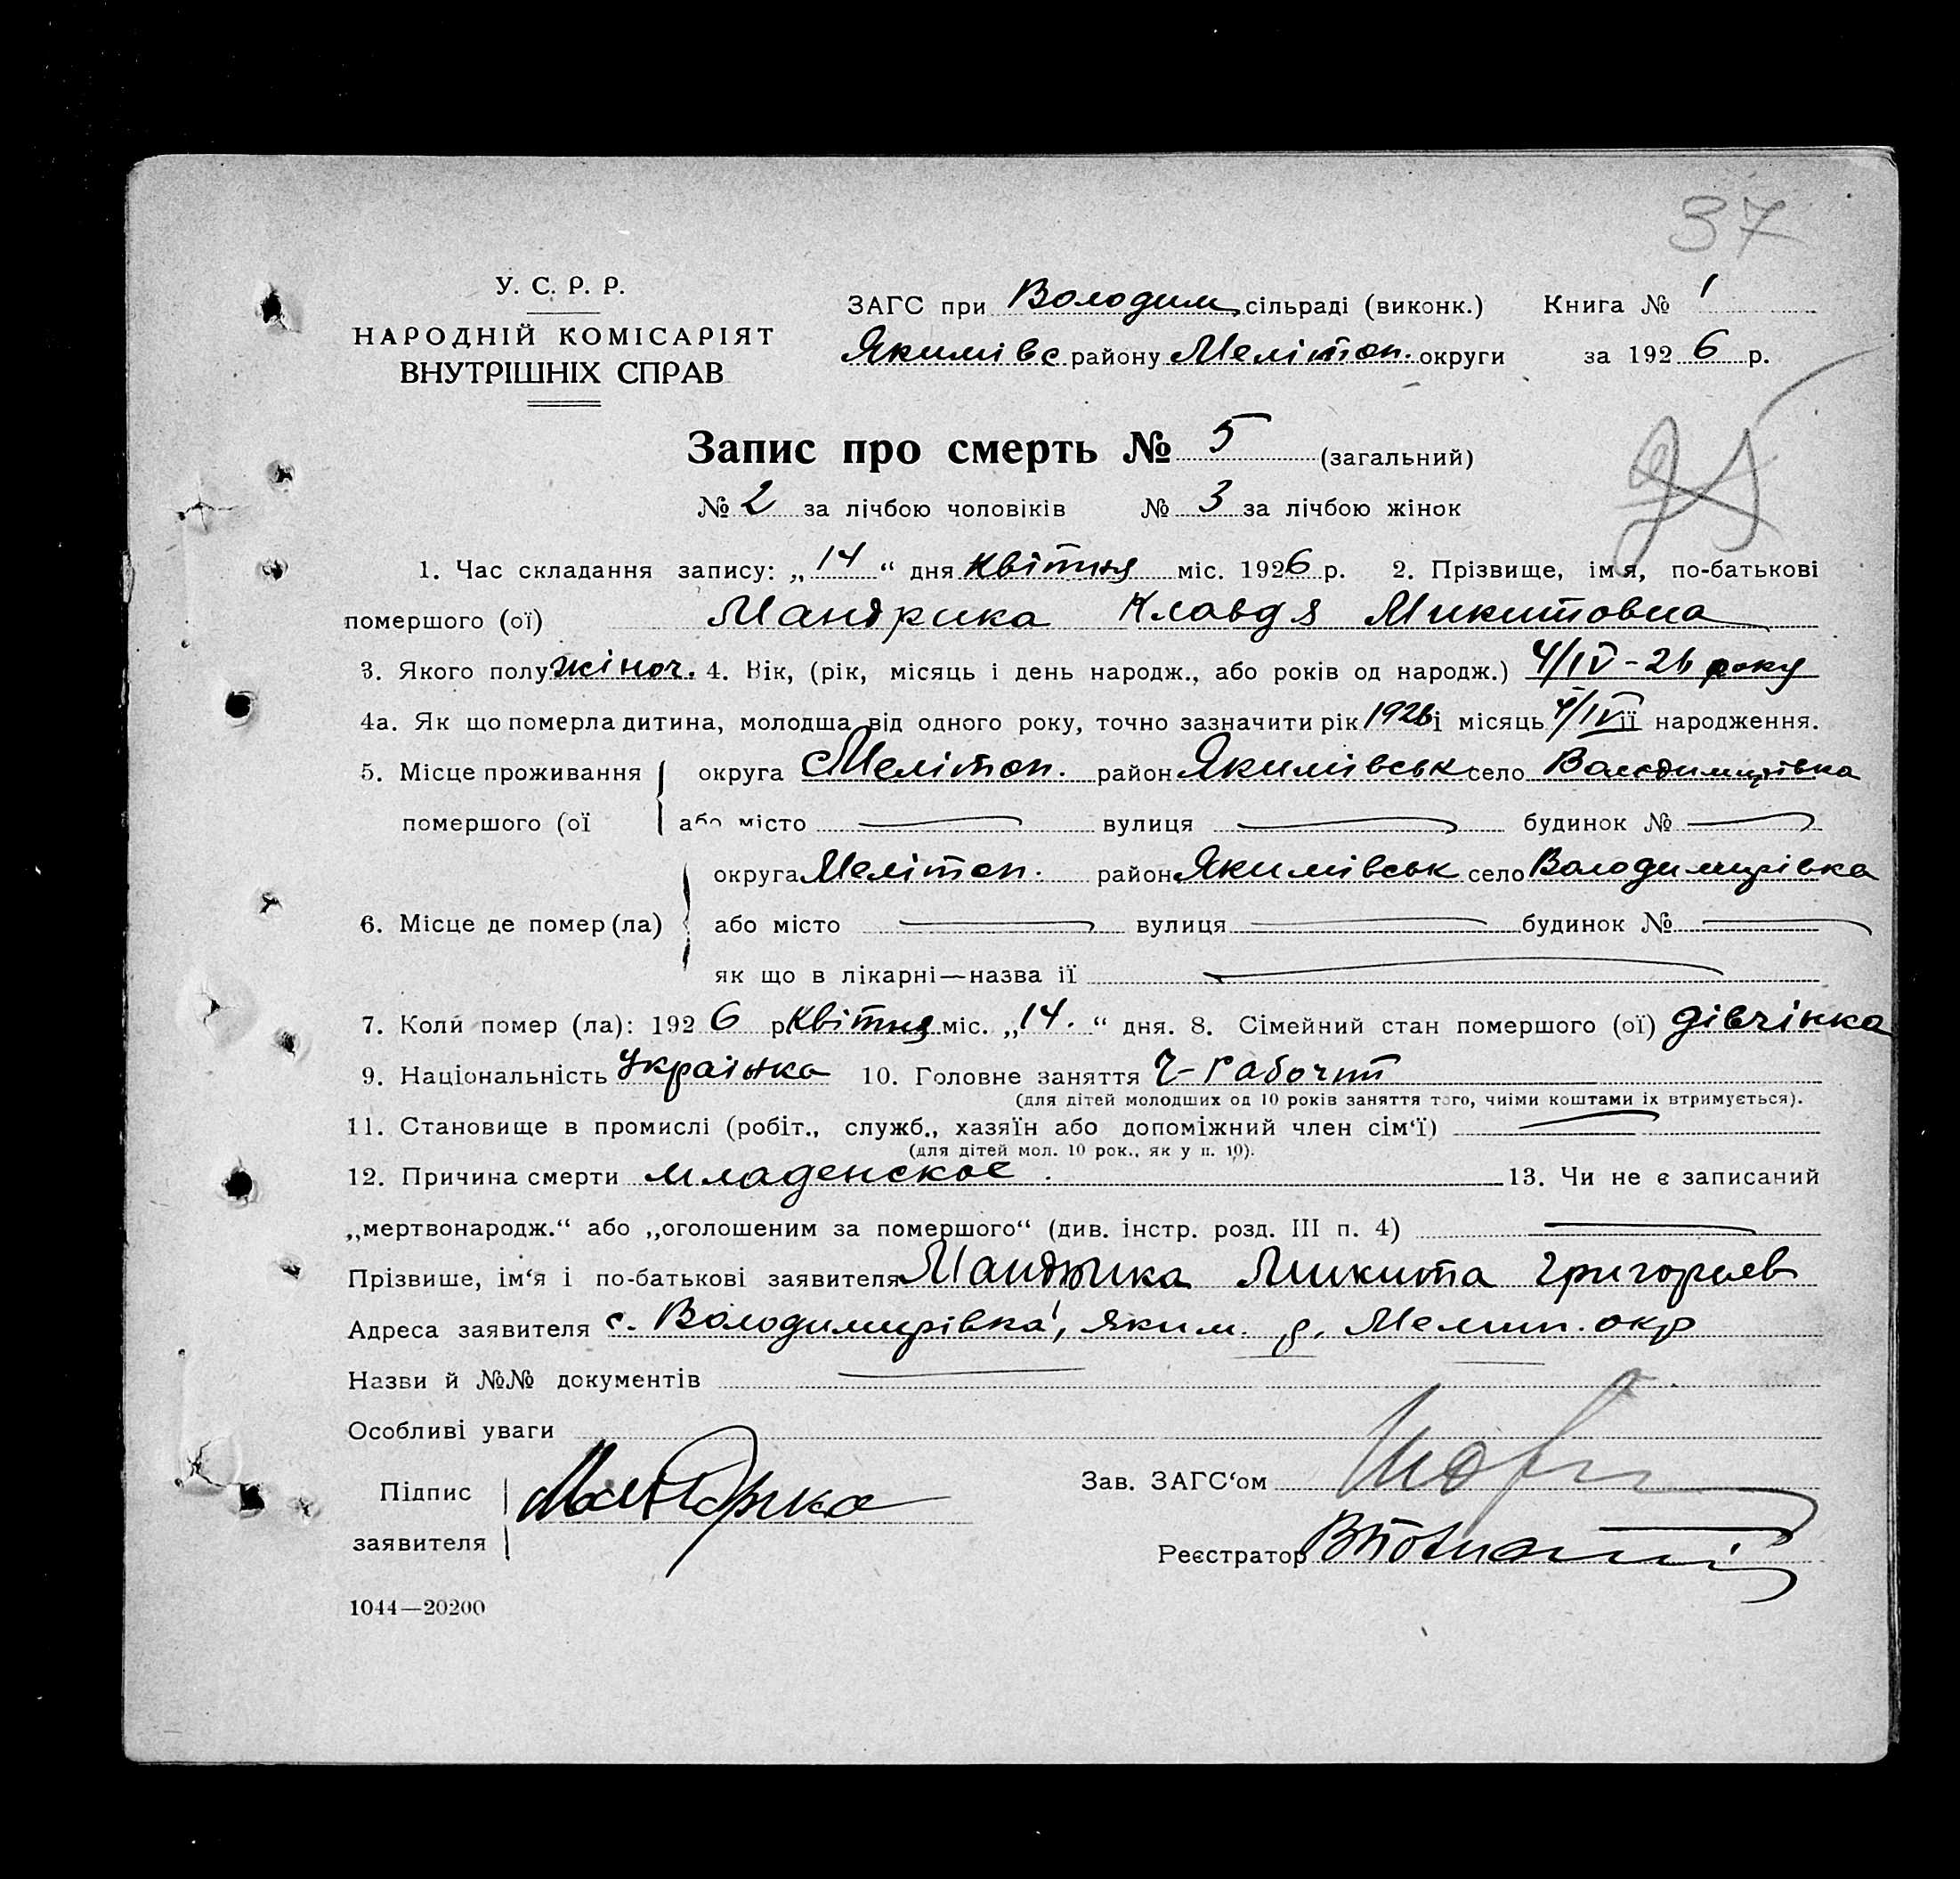 37
У. С. Р. Р.
НАРОДНІЙ КОМІСАРІЯТ
ВНУТРІШНІХ СПРАВ
ЗАГС при Володим. сільраді (виконк.) Книга № 1
Якимівс району Мелітоп. округи за 1926 р.
Запис про смерть № 5 (загальний)
№ 2 за лічбою чоловіків № 3 за лічбою жінок
1. Час складання запису: „14“ дня квітня міс. 1926 р. 2. Прізвище, імя, по-батькові
помершого (ої) Мандрика Клавдя Микитовна
3. Якого полу жіноч. 4. Вік, (рік, місяць і день народж., або років од народж.) 4/IV-26 року
4а. Як що померла дитина, молодша від одного року, точно зазначити рік 1926 і місяць 4/IV її народження.
5. Місце проживання округа Мелітоп. район Якимівськ село Володимирівка
помершого (ої або місто вулиця будинок №
округа Мелітоп. район Якимівськ село Володимирівка
6. Місце де помер (ла) або місто вулиця будинок №
як що в лікарні—назва її
7. Коли помер (ла): 1926 р квітня міс. „14.“ дня. 8. Сімейний стан помершого (ої) дівчінка
9. Національність Українка 10. Головне заняття Ч-рабочий
(для дітей молодших од 10 років заняття того, чиїми коштами їх втримується).
11. Становище в промислі (робіт., служб., хазяїн або допоміжний член сім‘ї)
(для дітей мол. 10 рок., як у п. 10).
12. Причина смерти младенское . 13. Чи не є записаний
„мертвонародж.“ або „оголошеним за помершого“ (див. інстр. розд. III п. 4)
Прізвише, ім‘я і по-батькові заявителя Мандрика Микита Григорьев
Адреса заявителя с. Володимирівка, Яким. р. Мелит. окр
Назви й №№ документів
Особливі уваги
Підпис Мандрика Зав. ЗАГС‘ом
заявителя Реєстратор
1044—20200